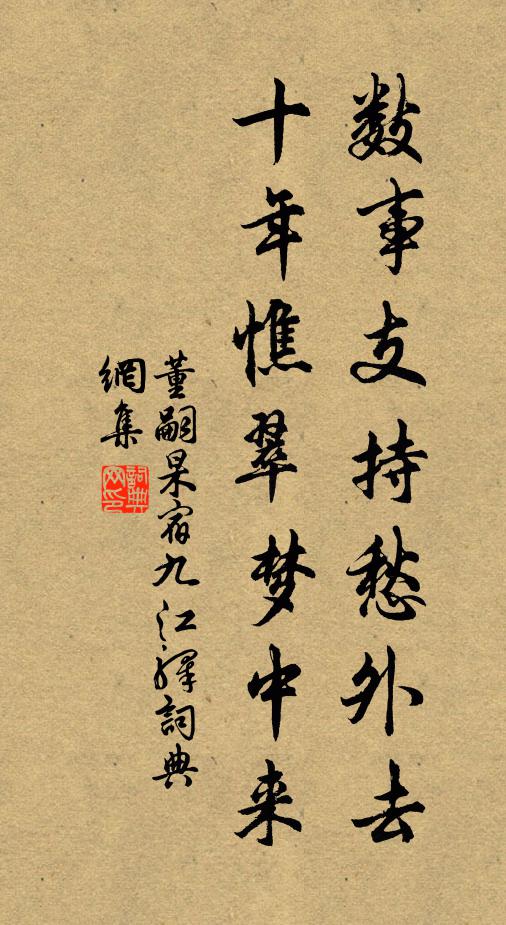 数事支持愁外去
十年憔翠梦中来
董嗣杲宿九江驿詞典
網集
詞典
网印